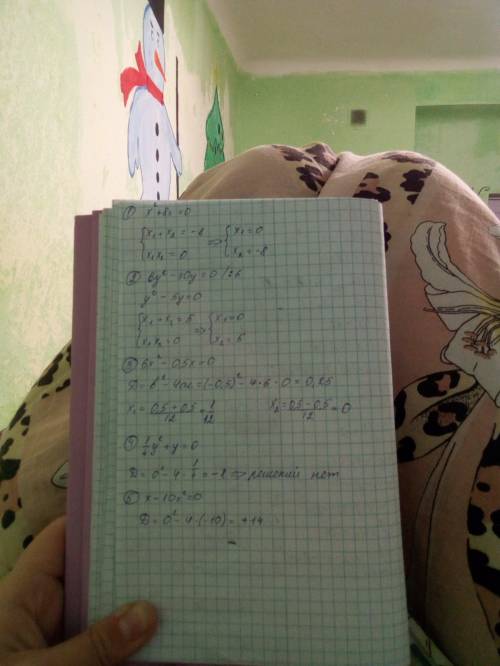 ① x²+8x=0
{x₁+x₂=-8 => {x₁=0
{x₁x₂=0 {x₂=-8
② 6y²-30y=0
y²-5y=0
{x₁+x₂=5 => {x₁=0
{x₁x₂=0 {x₂=5
③ 6x²-0,5x=0
D=b²-4ac=(-0,5)²-4·6·0=0,25
x₁=(0,5+0,5)/12=1/12 x₂=(0,5-0,5)/12=0
y²+y=0
=> решений нет
⑤ x-10x²=0
D=0²-4·(-10)=+14